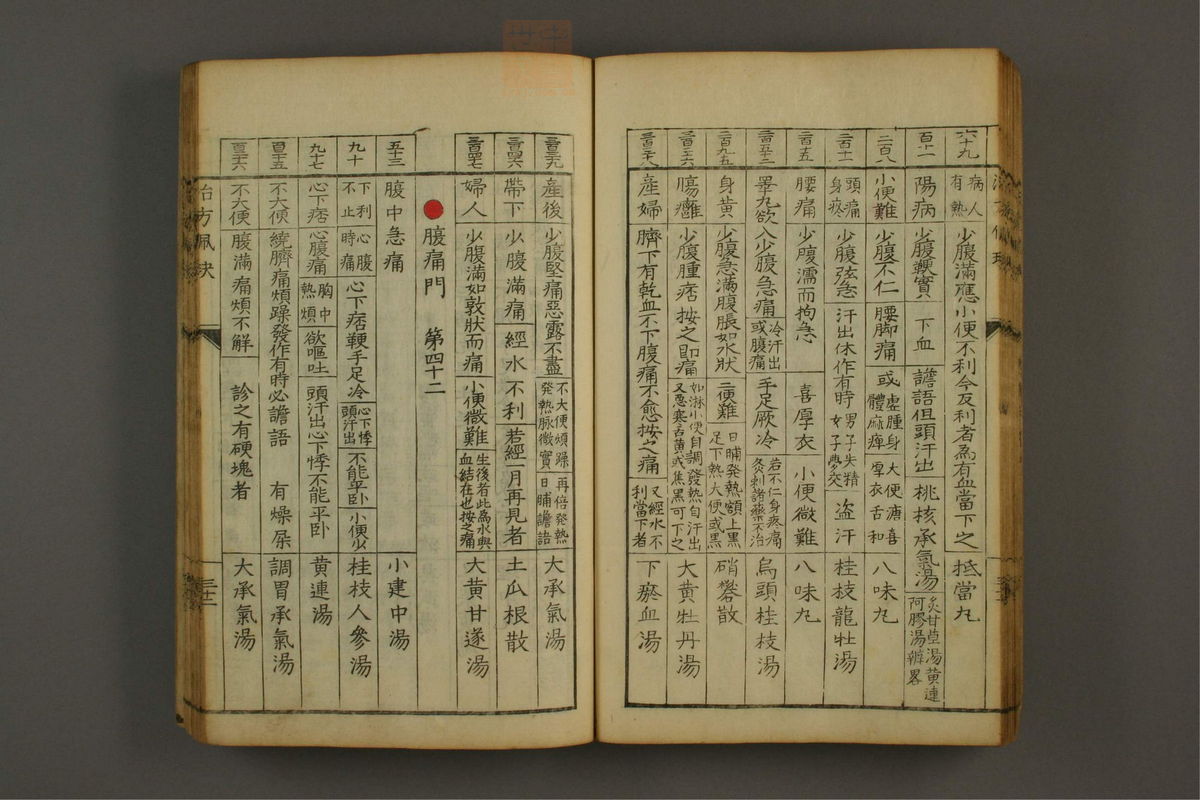 六十九 病人有熱 少腹滿應小便不利今反利者為有血當下之 抵當丸
陽病 少腹鞕實 下血 譫語但頭汗出 桃核承氣湯 炙甘草湯黄連阿膠湯辨畧
二百八 小便難 少腹不仁 腰脚痛 或虚腫身體麻痺 大便溏喜厚衣舌和 八味丸
二百十一 頭痛身疼 少腹弦急 汗出休作有時 男子失精女子夢交 盗汗 桂枝龍牡湯
二百十五 腰痛 少腹濡而拘急 喜厚衣 小便微難 八味丸
睪丸欲入少腹急痛 冷汗出或腹痛 手足厥冷 若不仁身疼痛灸刺諸藥不治 烏頭桂枝湯
二百九五 身黄 少腹急滿腹脹如水狀 二便難 日晡發熱額上黒足下熱大便或黒 硝礬散
腸癰 少腹腫痞按之即痛 如淋小便自調發熱自汗出又悪寒舌黄或焦黒可下之 大黄牡丹湯
產婦 臍下有乾血不下腹痛不愈按之痛 又經水不利當下者 下瘀血湯
產後 少腹堅痛惡露不盡 不大便煩躁發熱脉微實 再倍發熱日晡譫語 大承氣湯
帶下 少腹滿痛 經水不利 若經一月再見者 土瓜根散
婦人 少腹滿如敦狀而痛 小便微難 生後者此為水與血結在也按之痛 大黄甘遂湯
腹痛門 第四十二
五十三 腹中急痛 小建中湯
九十 下利不止 心腹時痛 心下痞鞕手足冷 心下悸頭汗出 不能平卧 小便少 桂枝人參湯
九十七 心下痞 心腹痛 胸中熱煩 欲嘔吐 頭汗出心下悸不能平卧 黄連湯
百三十五 不大便 繞臍痛煩躁發作有時必譫語 有燥屎 調胃承氣湯
百三十六 不大便 腹滿痛煩不解 診之有硬塊者 大承氣湯
治方夙訣
三十二